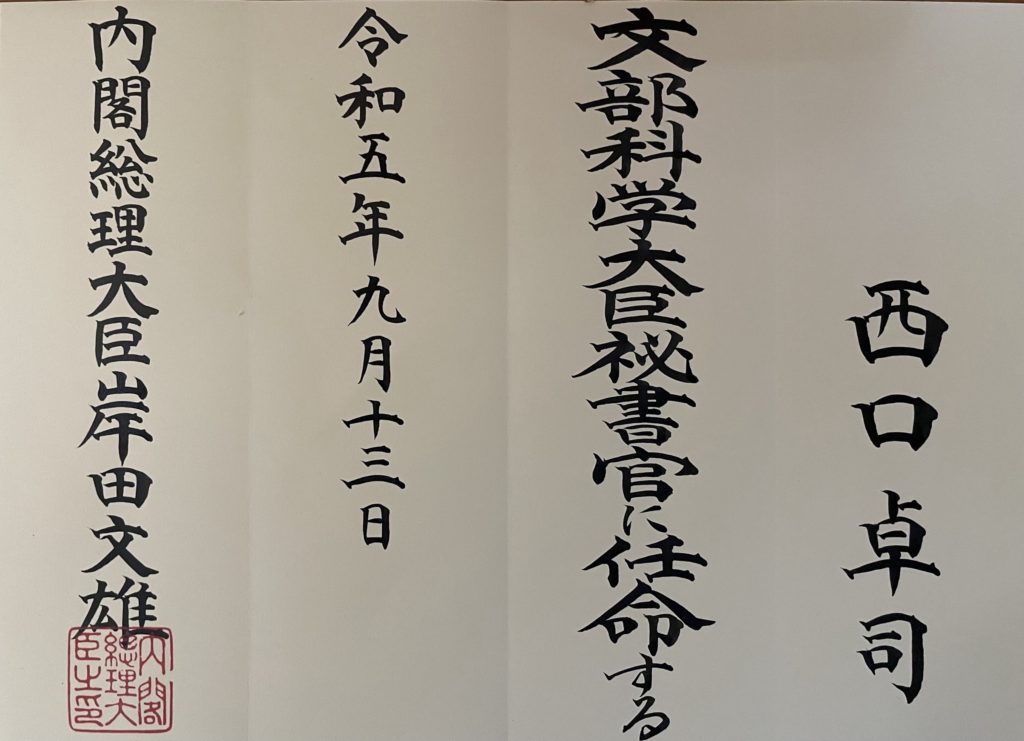 西口卓司
文部科学大臣秘書官に任命する
令和五年九月十三日
内閣総理大臣岸田文雄
内閣
総理大
臣之印